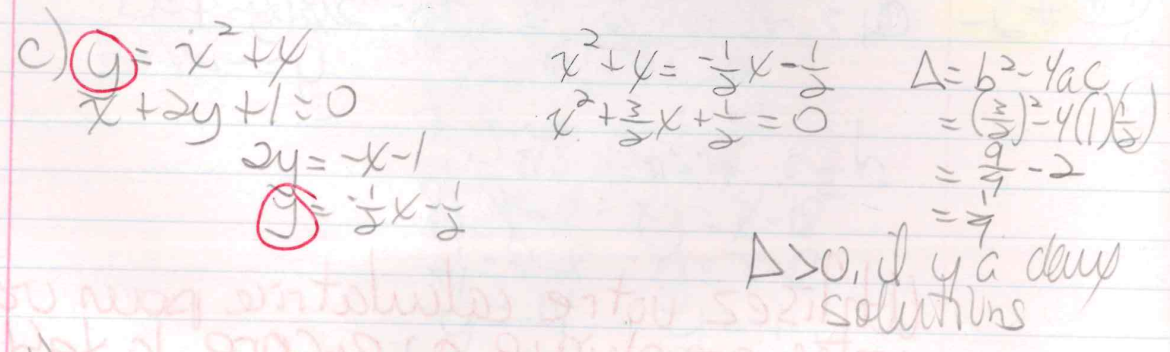 c) y = x² + x
x + 2y + 1 = 0
2y = -x - 1
y = -1/2 x - 1/2
x² + x = -1/2 x - 1/2
x² + 3/2 x + 1/2 = 0
Δ = b² - 4ac
= (3/2)² - 4(1)(1/2)
= 9/4 - 2
= 1/4
Δ>0, il y a deux
solutions